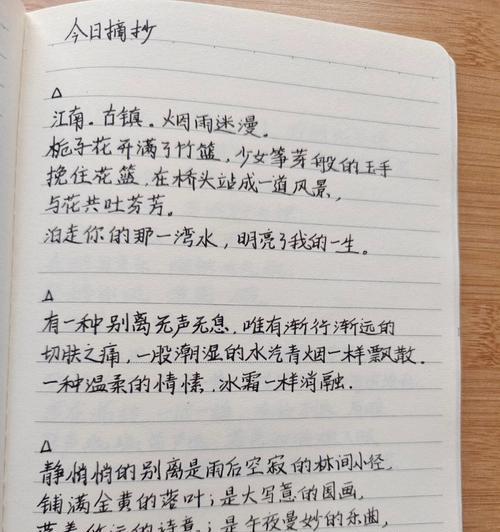 今日摘抄
△
江南。古镇。烟雨迷漫。
栀子花开满了竹篮，少女笋芽般的玉手
挽住花篮，在桥头站成一道风景，
与花共吐芬芳。
泊走你的那一湾水，明亮了我的一生。
△
有一种别离无声无息，唯有渐行渐远的
切肤之痛，一股潮湿的水汽青烟一样飘散.
一种温柔的情愫，冰霜一样消融.
△
静悄悄的别离是雨后空寂的林间小径，
铺满金黄的落叶；是大写意的国画，
悠远的诗意；是午夜曼妙的乐曲，